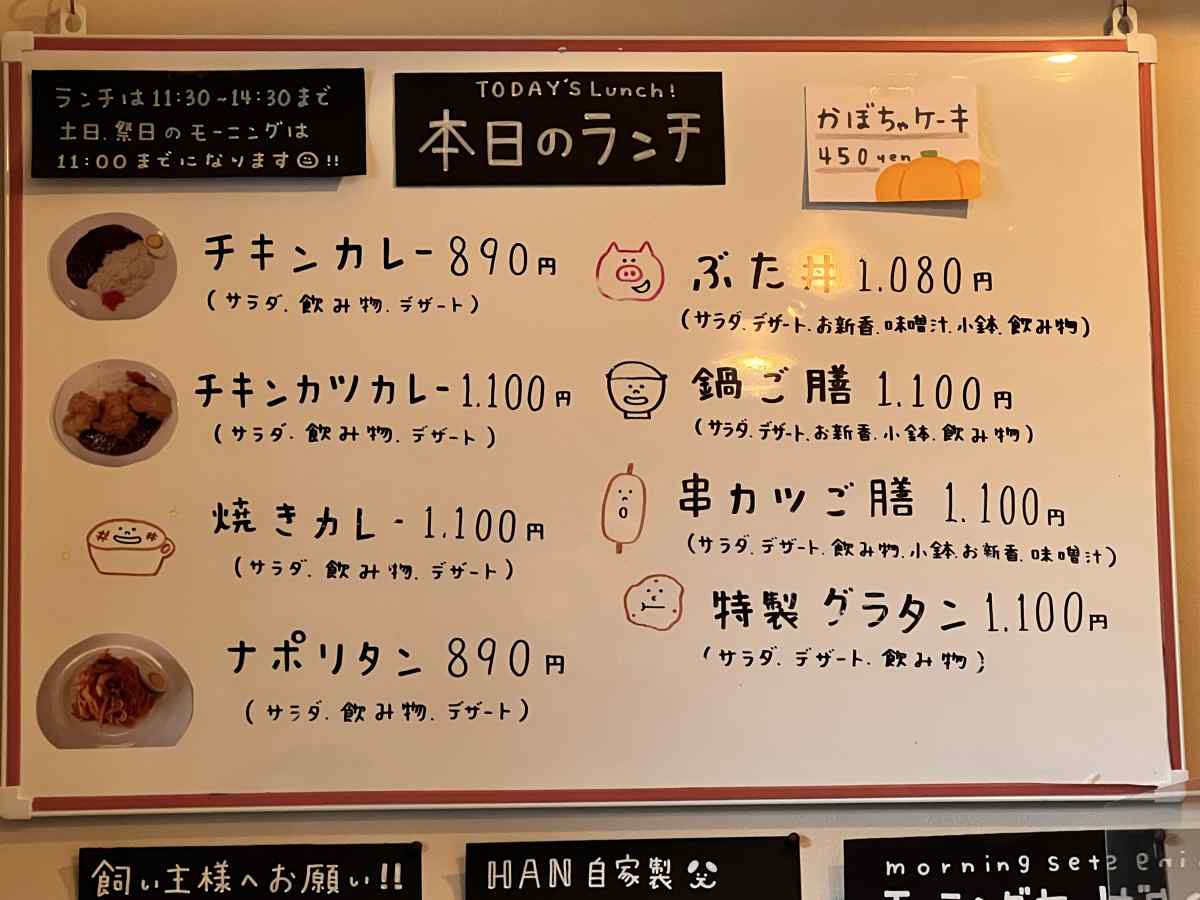 ランチは11:30~14:30まで
土日.祭日のモーニングは
11:00までになります!!
TODAY'S Lunch!
本日のランチ
かぼちゃケーキ
450yen
チキンカレー 890円
(サラダ.飲み物.デザート)
チキンカツカレー 1.100円
(サラダ.飲み物.デザート)
焼きカレー 1.100円
(サラダ.飲み物.デザート)
ナポリタン 890円
(サラダ.飲み物.デザート)
ぶた丼 1.080円
(サラダ.デザート.お新香.味噌汁.小鉢.飲み物)
鍋ご膳 1.100円
(サラダ.デザート.お新香.小鉢.飲み物)
串カツご膳 1.100円
(サラダ.デザート.飲み物.小鉢.お新香.味噌汁)
特製グラタン 1.100円
(サラダ.デザート.飲み物)
飼い主様へお願い!!
HAN自家製
morning sets